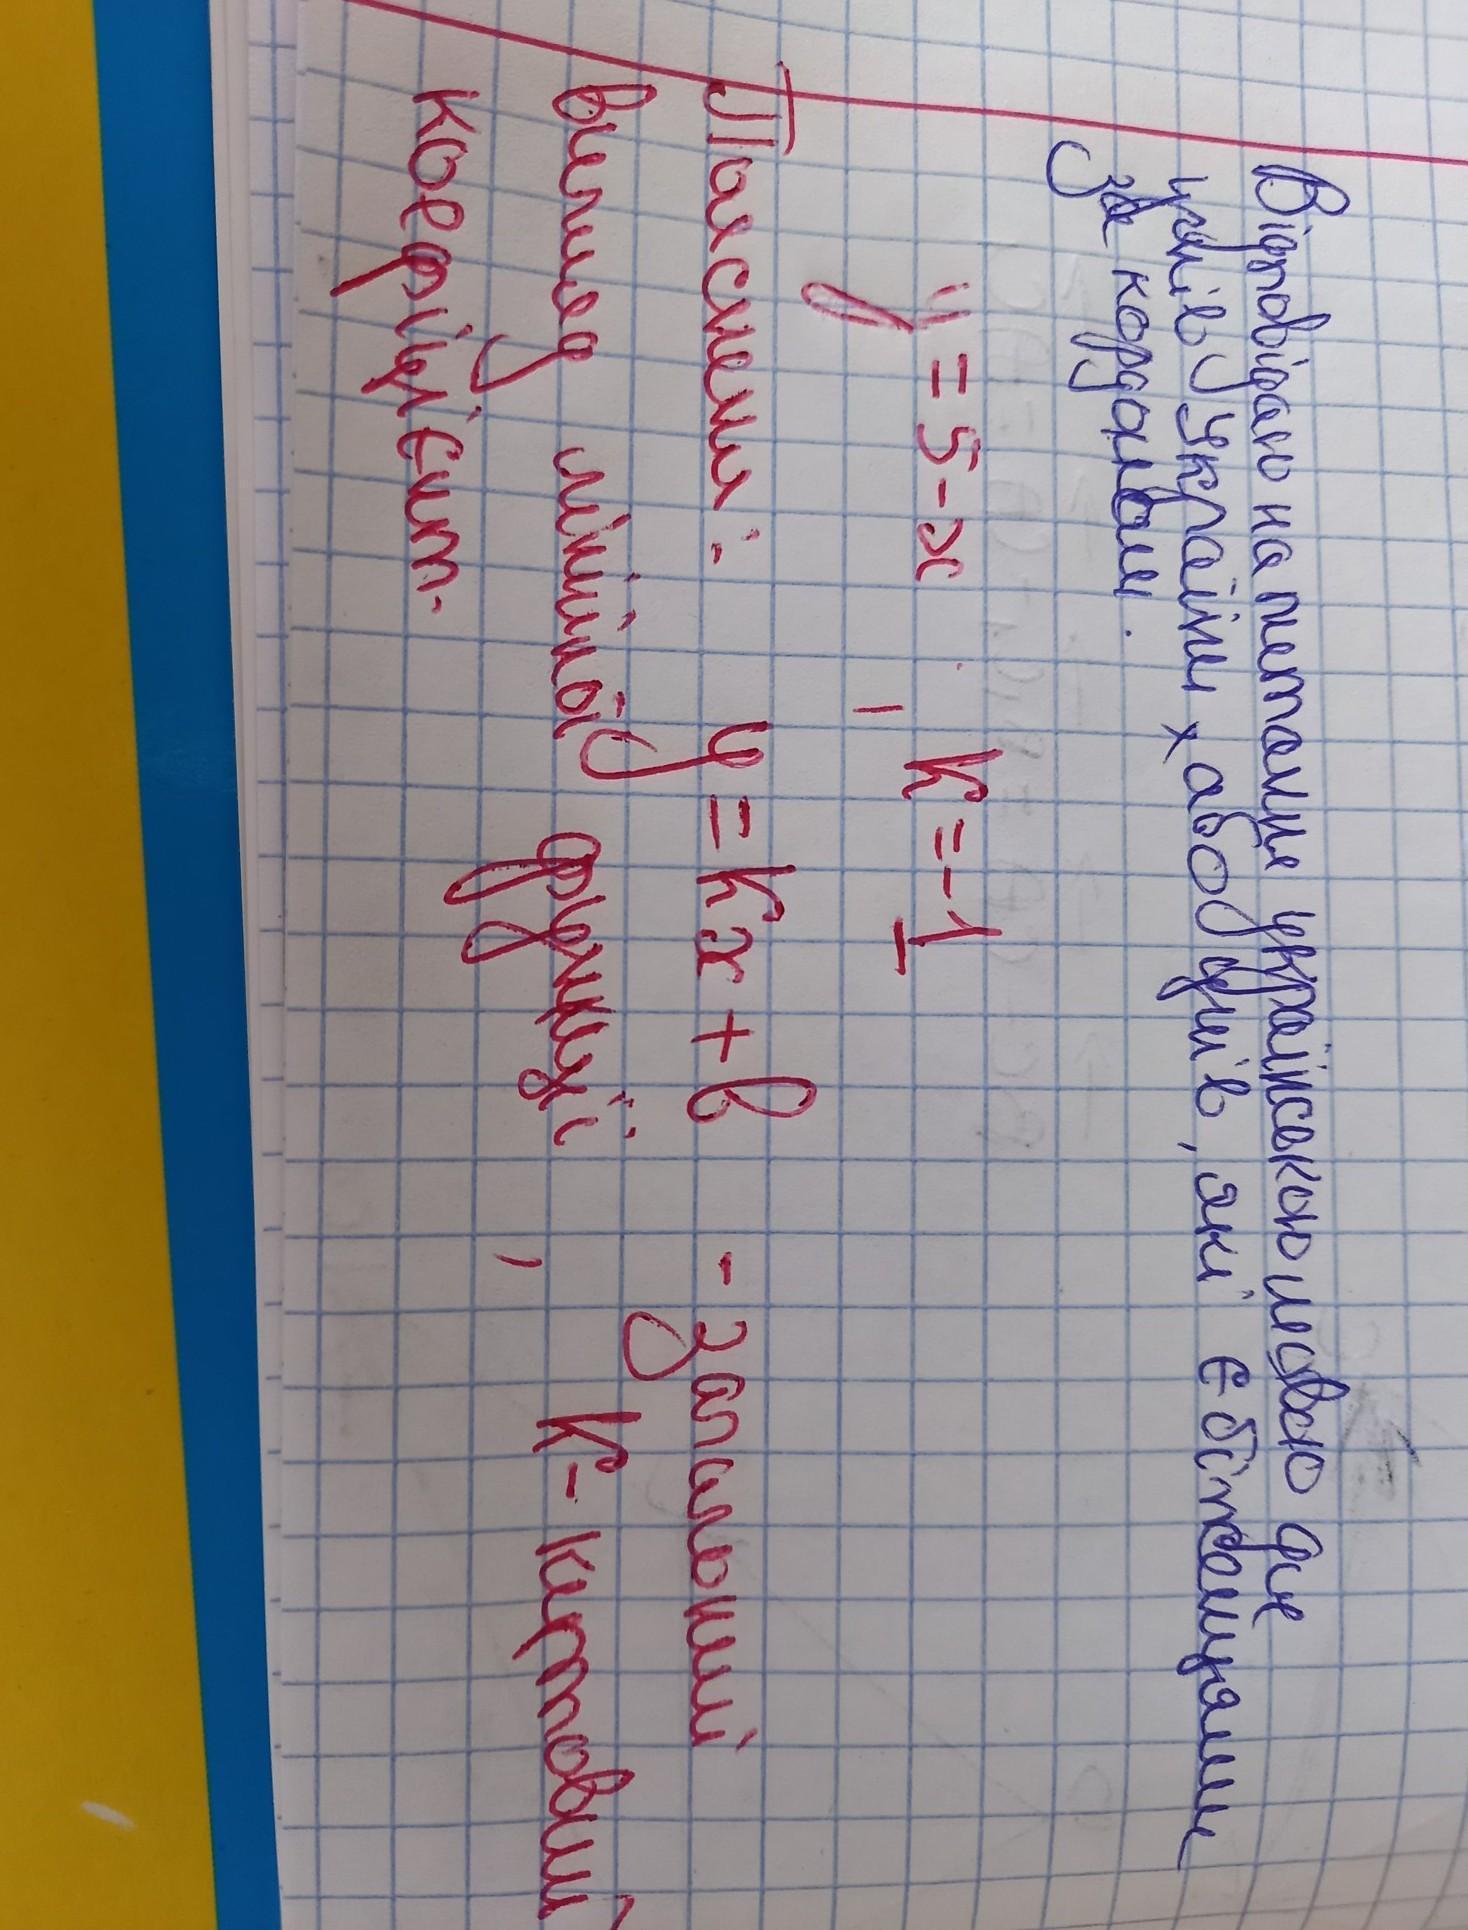 Відповідаю на питання українською мовою для
учнів України, або учнів, які є біженцями
за кордоном.
y = 5 - x , k = -1
Пояснення: y = kx + b - загальний
вигляд лінійної функції , k - кутовий
коефіцієнт.